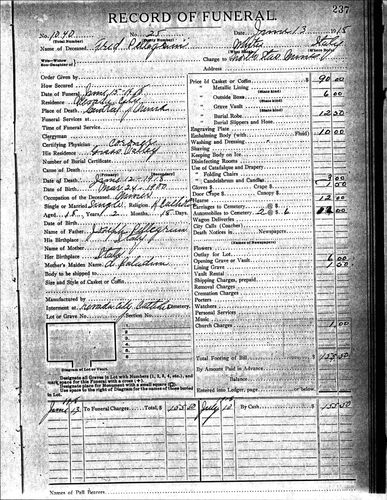 237
RECORD OF FUNERAL.
No. 1040 No. 21 Date June 13 1918
(Total Number) (Yearly Number)
Name of Deceased Fred Pellegrini White Italy
Charge to North Star Mines
Address
Order Given by
How Secured
Date of Funeral June 15-1918
Residence Nevada City
Place of Death Central Mine
Funeral Services at
Time of Funeral Service
Clergyman
Certifying Physician Coroner
His Residence Grass Valley
Number of Burial Certificate
Cause of Death
Date of Death June 12-1918
Date of Birth Mar 24-1900
Occupation of the Deceased Miner
Single or Married Single Religion Catholic
Aged 18 Years 2 Months 18 Days
Name of Father Joseph Pellegrini
His Birthplace Italy
Name of Mother
Her Birthplace Italy
Mother's Maiden Name
Body to be shipped to
Size and Style of Casket or Coffin
Manufactured by
Interment at Cemetery
Lot or Grave No. Section No.
Diagram of Lot or Vault.
Designate all Graves in Lot with Numbers (1, 2, 3, 4, etc.), and mark space for this Funeral with a cross (+).
Designate place for Monument with a small square (□).
Use space to the right of Diagram for the names of those buried in Lot.
Price of Casket or Coffin $ 90 00
" Metallic Lining
" Outside Boxes 6 00
" Grave Vault
" Burial Robe 12 50
" Burial Slippers and Hose
Engraving Plate
Embalming Body (with Fluid) 10 00
Washing and Dressing
Shaving
Keeping Body on Ice
Disinfecting Rooms
Use of Catafalque and Drapery
" Folding Chairs
" Candelabrum and Candles 3 00
Gloves $ Crape $ 1 50
Door Crape $
Hearse 12 00
Carriages to Cemetery @ $
Automobiles to Cemetery 2 @ $ 6
Wagon Deliveries
City Calls (Coaches)
Death Notices in Newspapers
(Names of Newspapers)
Flowers
Outlay for Lot
Opening Grave or Vault 6 00
Lining Grave 1 50
Vault Rental
Shipping Charges, prepaid
Removal Charges
Cremation Charges
Porters
Watchers
Personal Services
Music
Church Charges 1 00
Total Footing of Bill $ 155 50
By Amount Paid in Advance
Balance
Entered into Ledger, page or below
1918
June 13 To Funeral Charges, Total, $ 155 50 July 10 By Cash $ 155 50
Names of Pall Bearers